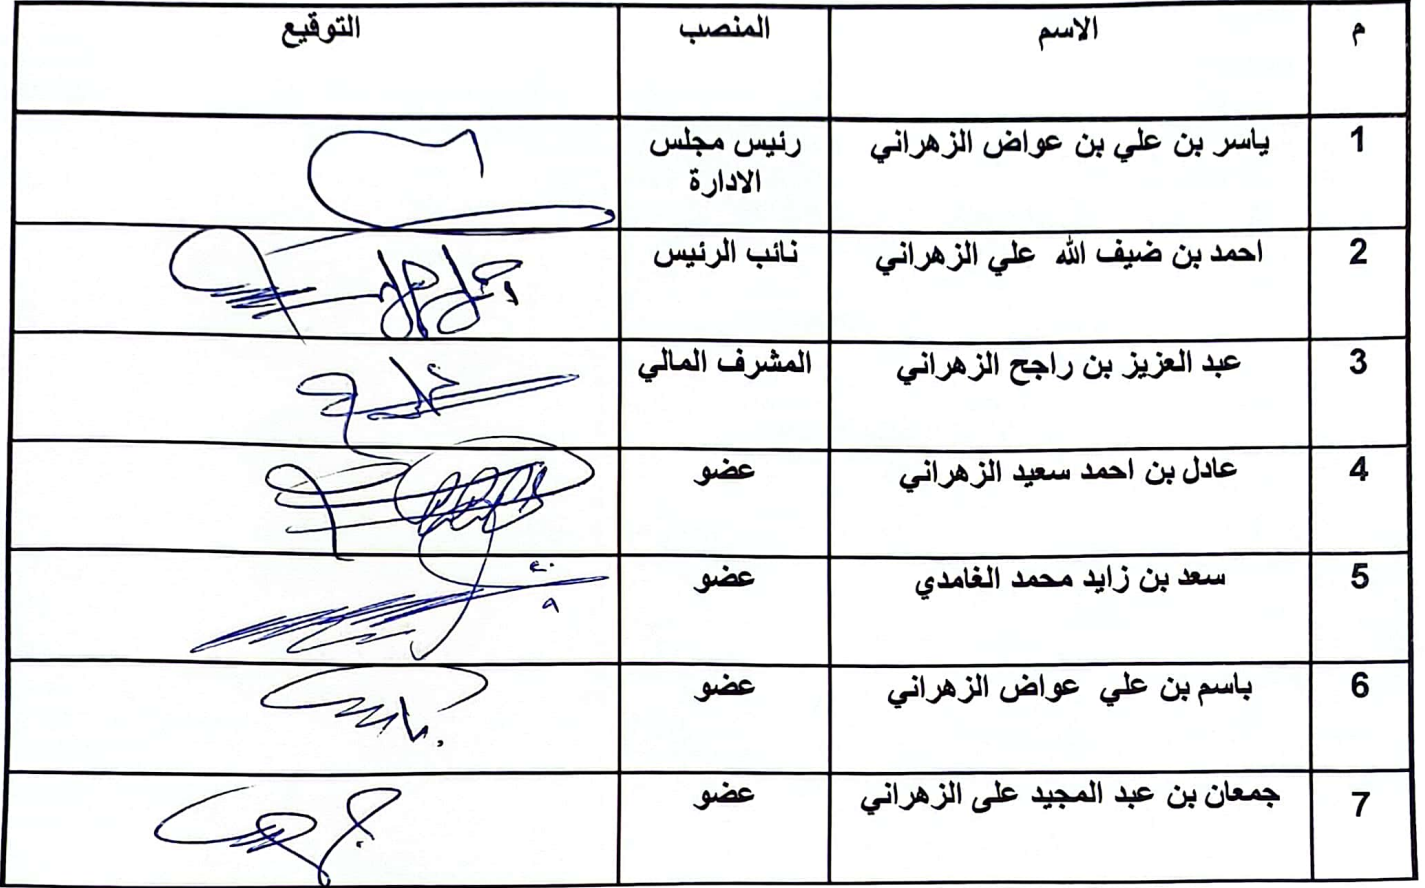 م الاسم المنصب التوقيع
1 ياسر بن علي بن عواض الزهراني رئيس مجلس
الادارة
2 احمد بن ضيف الله علي الزهراني نائب الرئيس
3 عبد العزيز بن راجح الزهراني المشرف المالي
4 عادل بن احمد سعيد الزهراني عضو
5 سعد بن زايد محمد الغامدي عضو
6 باسم بن علي عواض الزهراني عضو
7 جمعان بن عبد المجيد على الزهراني عضو